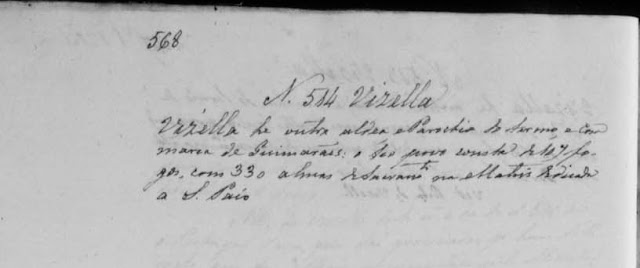 568
N. 514 Vizella
Vizella he outra aldea e Parochia do termo e Com
marca de Guimarães: o seu povo consta de 107 fo-
gos, com 330 almas de Sacramto. na Matris dedicada
a S. Paio